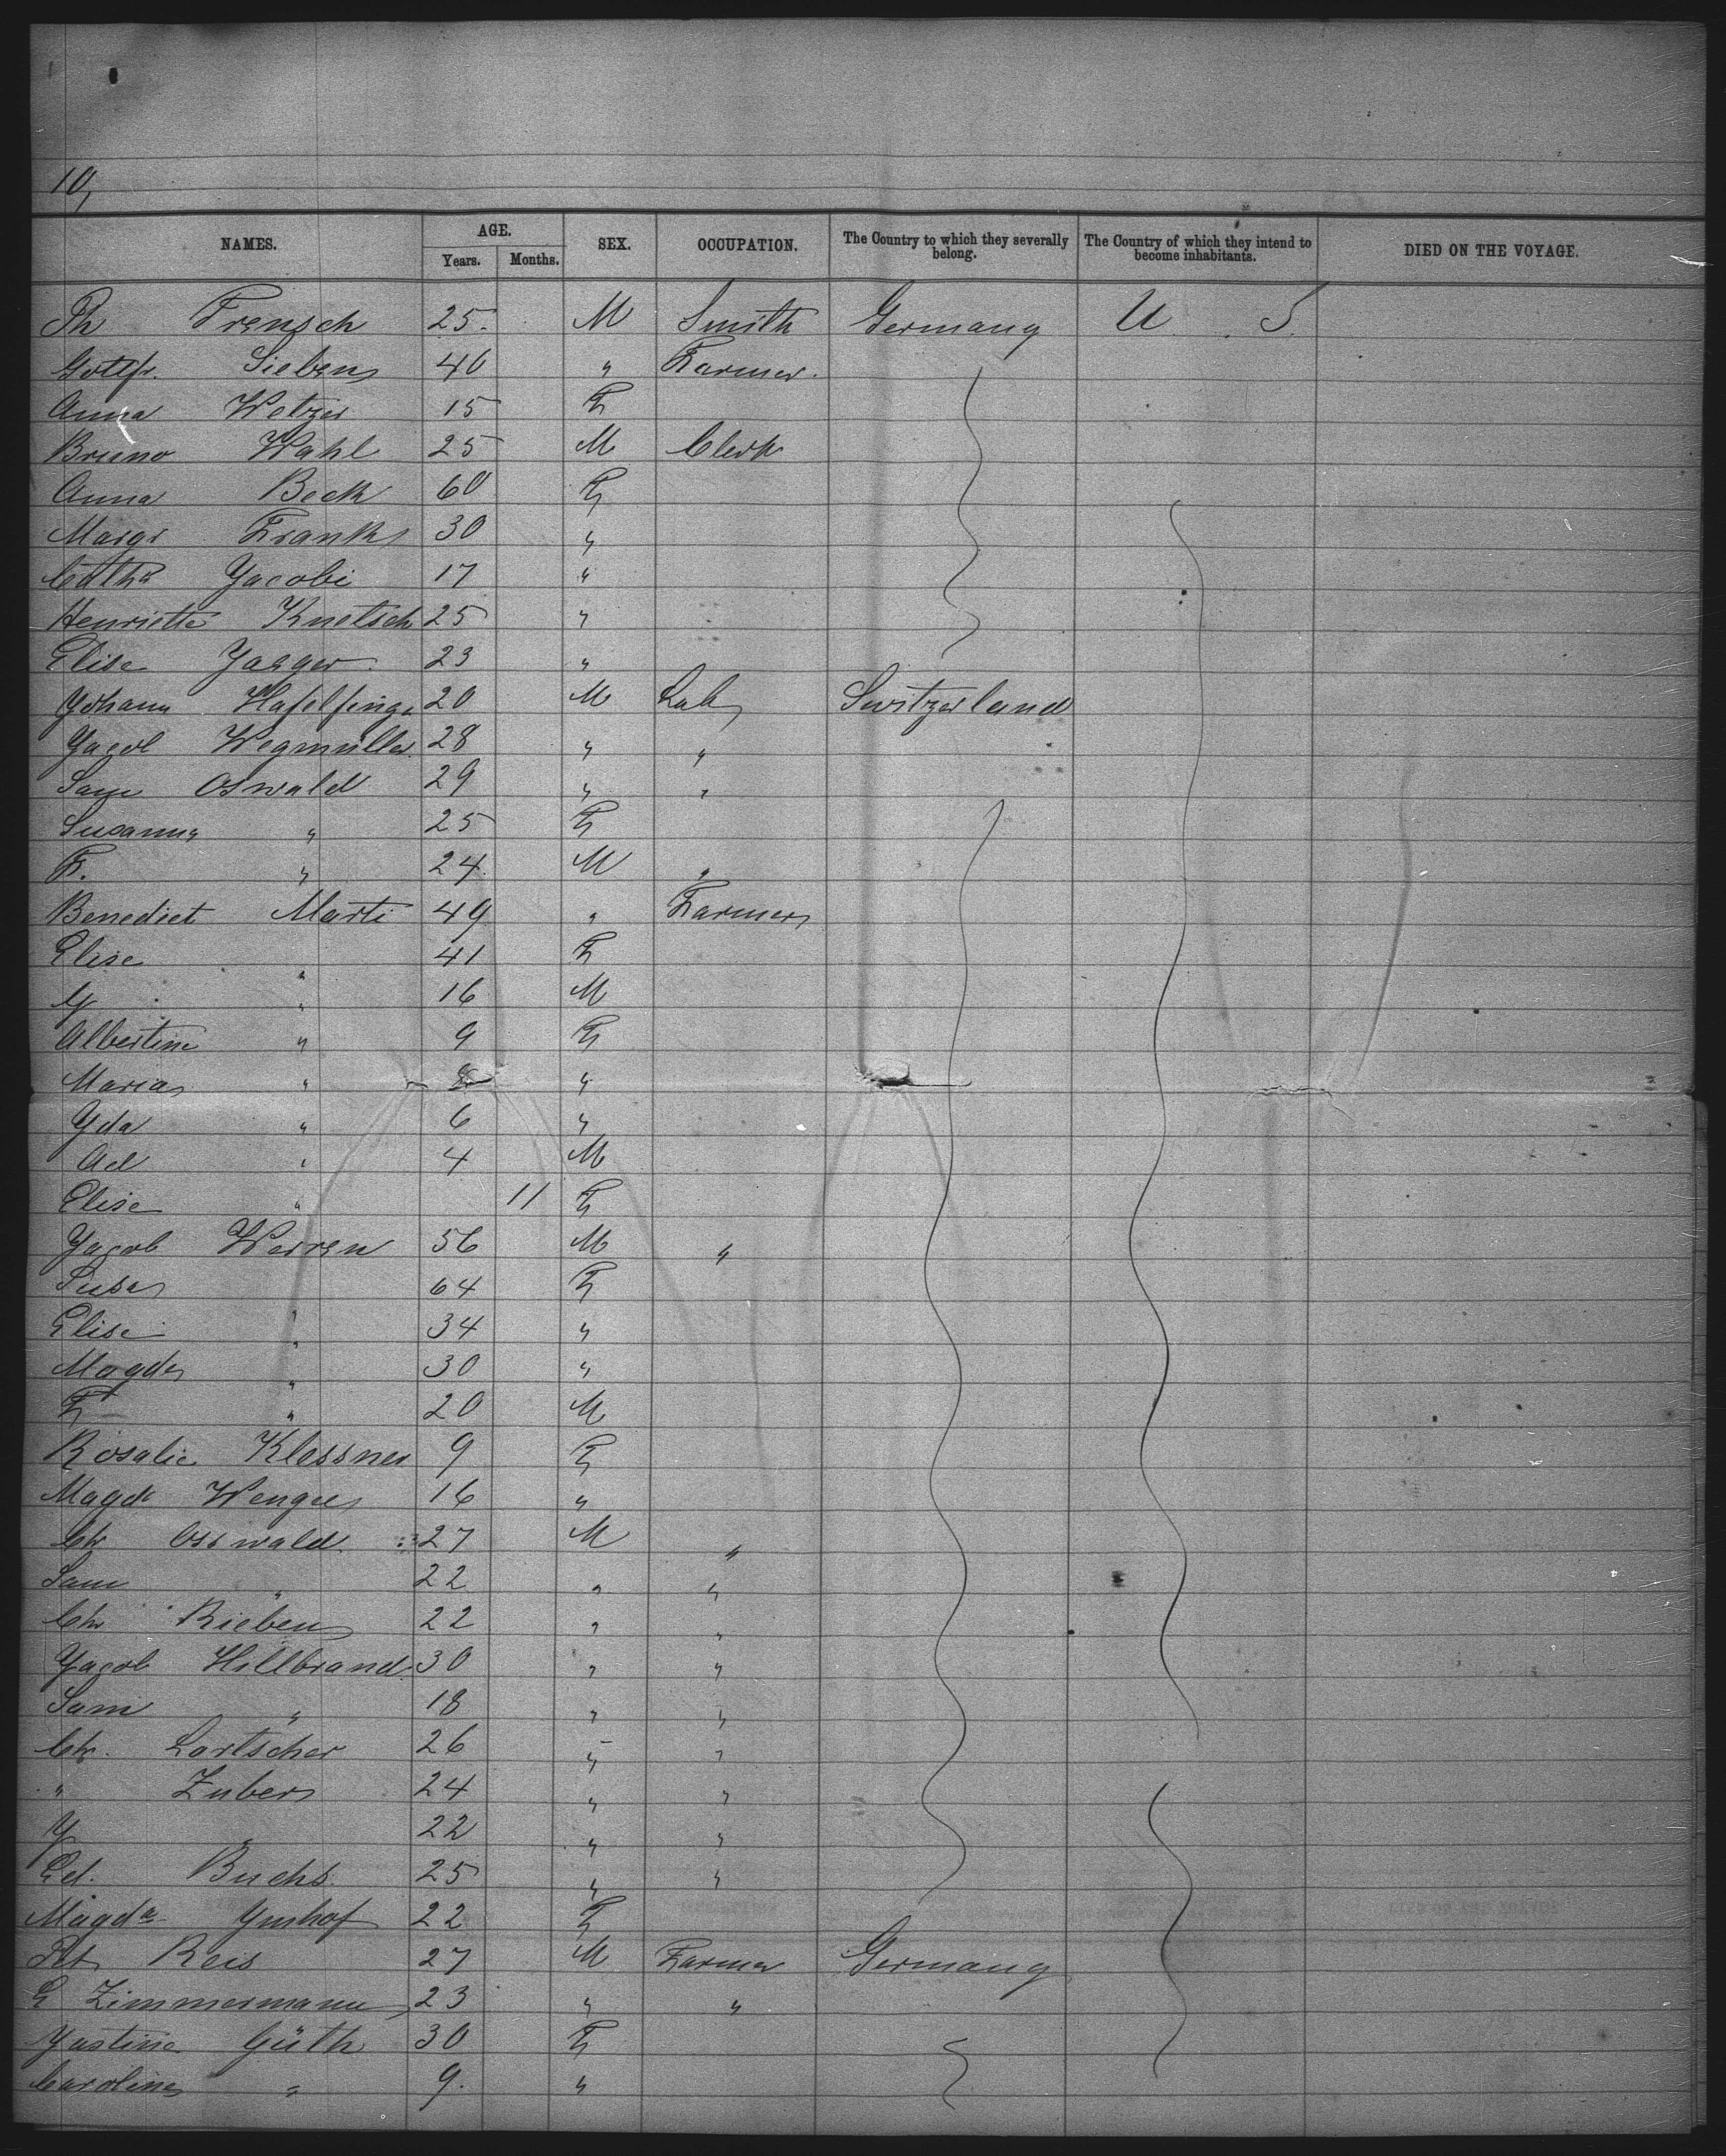 10,
NAMES. AGE. SEX. OCCUPATION. The Country to which they severally belong. The Country of which they intend to become inhabitants. DIED ON THE VOYAGE.
Years. Months.
Ph Frensch 25. M Smith Germany U S.
Gottfr. Sieben 40 " Farmer.
Anna Wetzer 15 F
Bruno Wahl 25 M Clerk
Anna Beck 60 F
Margr Frank 30 "
Catha Jacobi 17 "
Henriette Knetsch 25 "
Elise Jaeger 23 "
Johann Hafelfinge 20 M Lab Switzerland
Jacob Wegmüller 28 " "
Sam Oswald 29 " "
Susanna " 25 F
F. " 24. M "
Benedict Marti 49 " Farmer
Elise " 41 F
G " 16 M
Albertine " 9 F
Maria " 8 "
Yda " 6 "
Ad " 4 M
Elise " 11 F
Jacob Werren 56 M "
Susa " 64 F
Elise " 34 "
Magda " 30 "
F " 20 M
Rosalie Klossner 9 F
Magda Wenger 16 "
Ch Osswald 27 M "
Sam " 22 " "
Chr Rieben 22 " "
Jacob Hillbrand 30 " "
Sam " 18 " "
Ch. Lortscher 26 " "
" Zuber 24 " "
J " 22 " "
Ed. Buchs 25 " "
Magda Ymhof 22 F
Pet Reis 27 M Farmer Germany
G Zimmermann 23 " "
Justine Güth 30 F
Caroline " 9. "